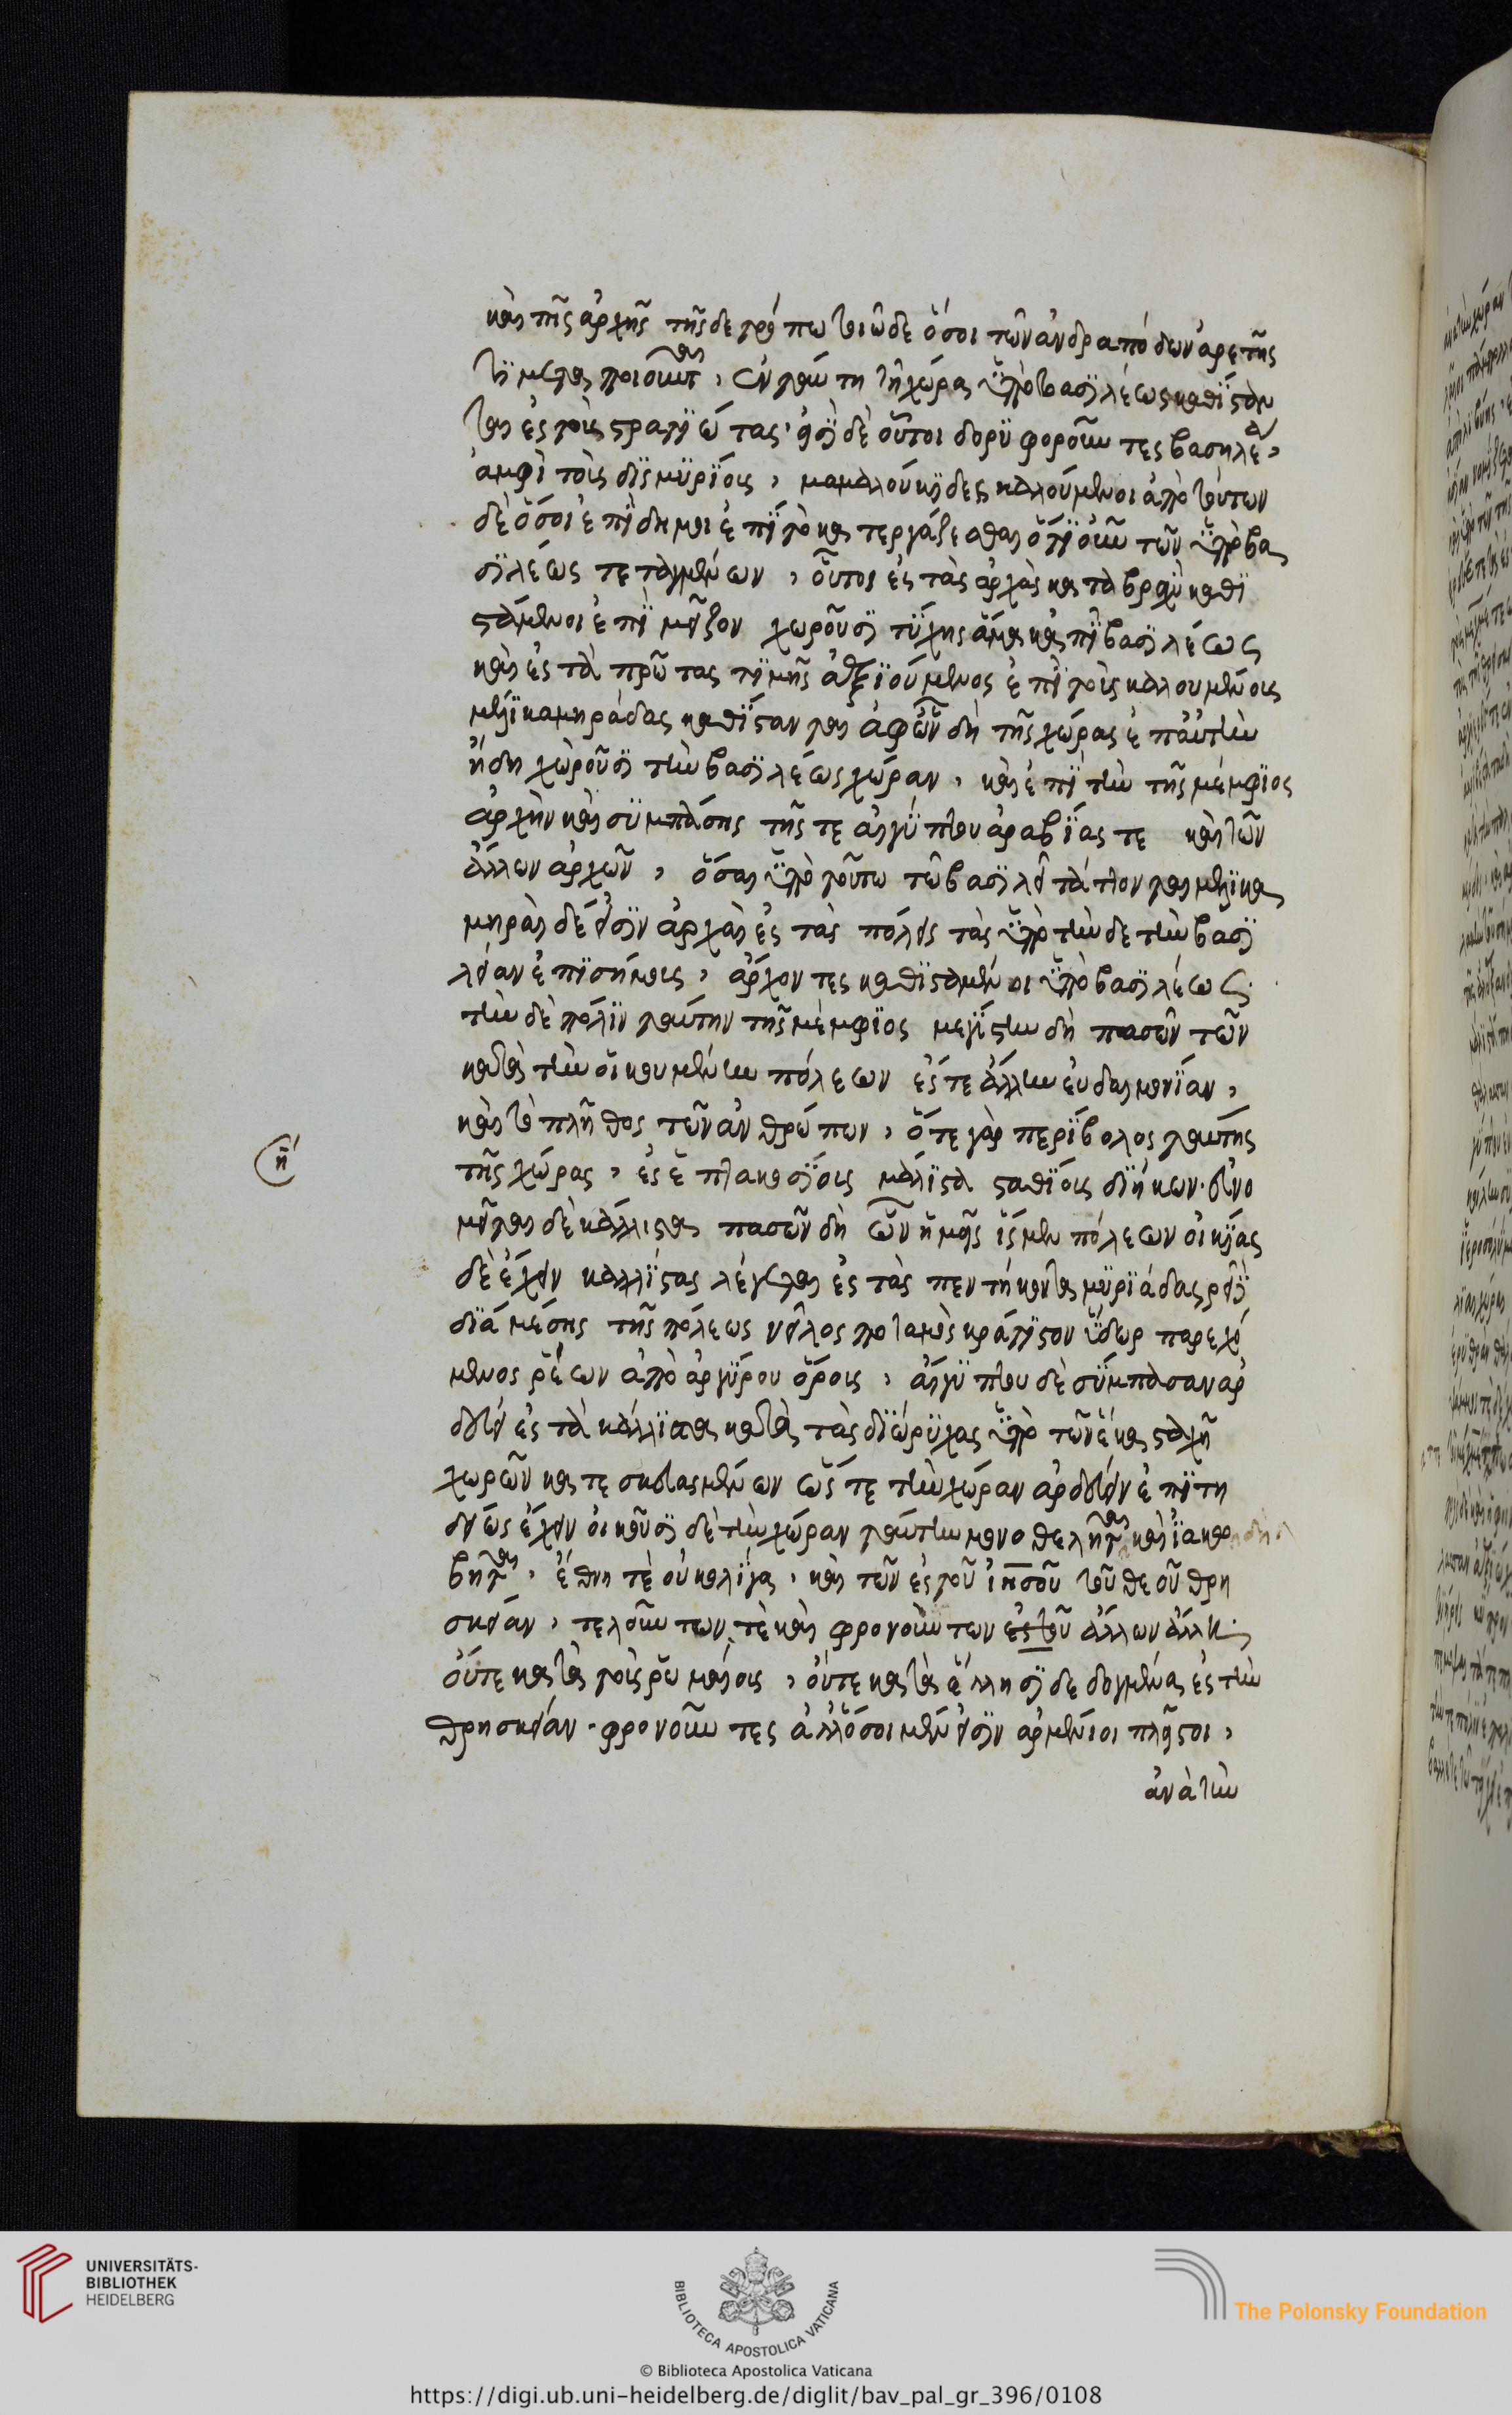 καὶ τῆς ἀρχῆς τῆςδε τρόπω τοιῶδε ὅσοι τῶν ἀνδραπόδων ἀρετῆς
τϊ μεταποιοῦνται, ἐν ταύτη τῆ χώρα ὑπὸ βασϊλέως καθΐσταν
ται ἐς τοὺς στρατϊώτας· εἰσϊ δὲ οὗτοι δορϋφοροῦντες βασηλέα,
ἀμφὶ τοὺς δϊσμϋρΐους, μαμαλούκϊδες καλούμενοι ἀπὸ τούτων
δὲ ὅσοι ἐπΐδημοι ἐπΐ τὸ κατεργάζεσθαι ὅτϊοῦν τῶν ὑπὸ βα
σϊλέως τεταγμένων, οὗτοι ἐς τὰς ἀρχὰς κατὰ βραχὺ καθϊ
στάμενοι ἐπΐ μεῖζον χωροῦσϊ τΰχης ἅμα καὶ ἐπΐ βασϊλέως
καὶ ἐς τὰ πρῶτας τϊμῆς ἀξϊούμενος ἐπΐ τοὺς καλουμένους
μελϊκαμηράδας καθΐστανται ἀφῶν δὴ τῆς χώρας ἐπ᾽ αὐτὴν
ἤδη χωροῦσϊ τὴν βασϊλέως χώραν, καὶ ἐπΐ τὴν τῆς μέμφϊος
ἀρχὴν καὶ σϋμπάσης τῆς τε αἰγύπτου ἀραβΐας τε καὶ τῶν
ἄλλων ἀρχῶν, ὅσαι ὑπὸ τοῦτω τῶ βασϊλεῖ τάττονται μελϊκα
μηράδαι δέ εἰσϊν ἀρχαὶ ἐς τὰς πόλεις τὰς ὑπὸ τὴν δε τὴν βασϊ
λείαν ἐπϊσήμους, ἄρχοντες καθϊσταμένοι ὑπὸ βασϊλέως.
τὴν δὲ πόλϊν ταύτην τῆς μέμφϊος μεγΐστην δὴ πασῶν τῶν
κατὰ τὴν οἰκουμένην πόλεων ἐς τε ἄλλην εὐδαιμονΐαν,
καὶ τὸ πλῆθος τῶν ἀνθρώπων, ὅτε γὰρ περΐβολος ταύτης
η
τῆς χώρας, ἐς ἑπτακοσΐους μάλϊστα σταδΐους διήκων· εὐνο
μεῖται δὲ κάλλιστα πασῶν δὴ ὧν ἡμεῖς ἴσμεν πόλεων οἰκΐας
δὲ ἔχειν καλλΐστας λέγεται ἐς τὰς πεντήκοντα μϋρϊάδας ῥεῖ
δϊά μέσης τῆς πόλεως νεῖλος ποταμὸς κράτϊστον ὕδωρ παρεχό
μενος ῥέων ἀπὸ ἀργϋροῦ ὄρους, αἰγϋπτου δὲ σΰμπασαν ἀρ
δεύει ἐς τὰ κάλλϊστα κατὰ τὰς δϊώρϋχας ὑπὸ τῶν ἑκασταχῆ
χωρῶν κατεσκευασμένων ὥς τε τὴν χώραν ἀρδεύειν ἐπϊτη
δείως ἔχειν οἰκοῦσϊ δὲ τὴν χώραν ταύτην μονοθελῆται καὶ ϊακο
βηται, ἔθνη τὲ οὐκ ολΐγα, καὶ τῶν ἐς τοῦ ἰησοῦ τοῦ θεοῦ θρη
σκείαν, τελοῦντων, τὲ καὶ φρονοὺντων ἐς τοῦ ἄλλων ἄλλη.
οὔτε κατὰ τοὺς ῥωμαίους, οὔτε κατὰ ἕλλησϊ δε δογμένα ἐς τὴν
θρησκείαν· φρονοῦντες ἀλλ᾽ ὅσοι μέν εἰσϊν ἀρμένιοι πλεῖστοι,
ἀνὰ τὴν
UNIVERSITÄTS-
BIBLIOTHEK
HEIDELBERG
BIBLIOTECA APOSTOLICA VATICANA
The Polonsky Foundation
© Biblioteca Apostolica Vaticana
https://digi.ub.uni-heidelberg.de/diglit/bav_pal_gr_396/0108